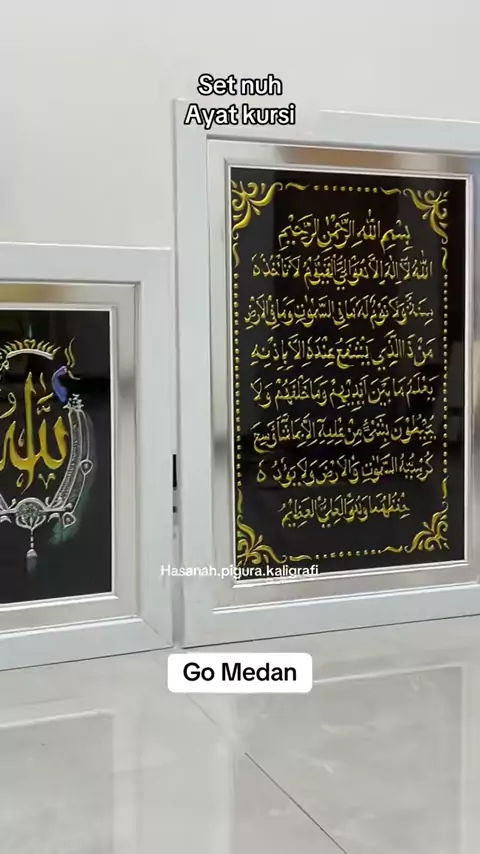 Set nuh
Ayat kursi
بِسْمِ اللهِ الرَّحْمٰنِ الرَّحِيْمِ
اَللهُ لَآ اِلٰهَ اِلَّا هُوَ الْحَيُّ الْقَيُّوْمُ لَا تَأْخُذُهٗ
سِنَةٌ وَّلَا نَوْمٌ لَهٗ مَا فِى السَّمٰوٰتِ وَمَا فِى الْاَرْضِ
مَنْ ذَا الَّذِيْ يَشْفَعُ عِنْدَهٗ اِلَّا بِاِذْنِهٖ
يَعْلَمُ مَا بَيْنَ اَيْدِيْهِمْ وَمَا خَلْفَهُمْ وَلَا
يُحِيْطُوْنَ بِشَيْءٍ مِّنْ عِلْمِهٖ اِلَّا بِمَا شَآءَ وَسِعَ
كُرْسِيُّهُ السَّمٰوٰتِ وَالْاَرْضَ وَلَا يَـُٔوْدُهٗ
حِفْظُهُمَا وَهُوَ الْعَلِيُّ الْعَظِيْمُ
الله
Hasanah.pigura.kaligrafi
Go Medan